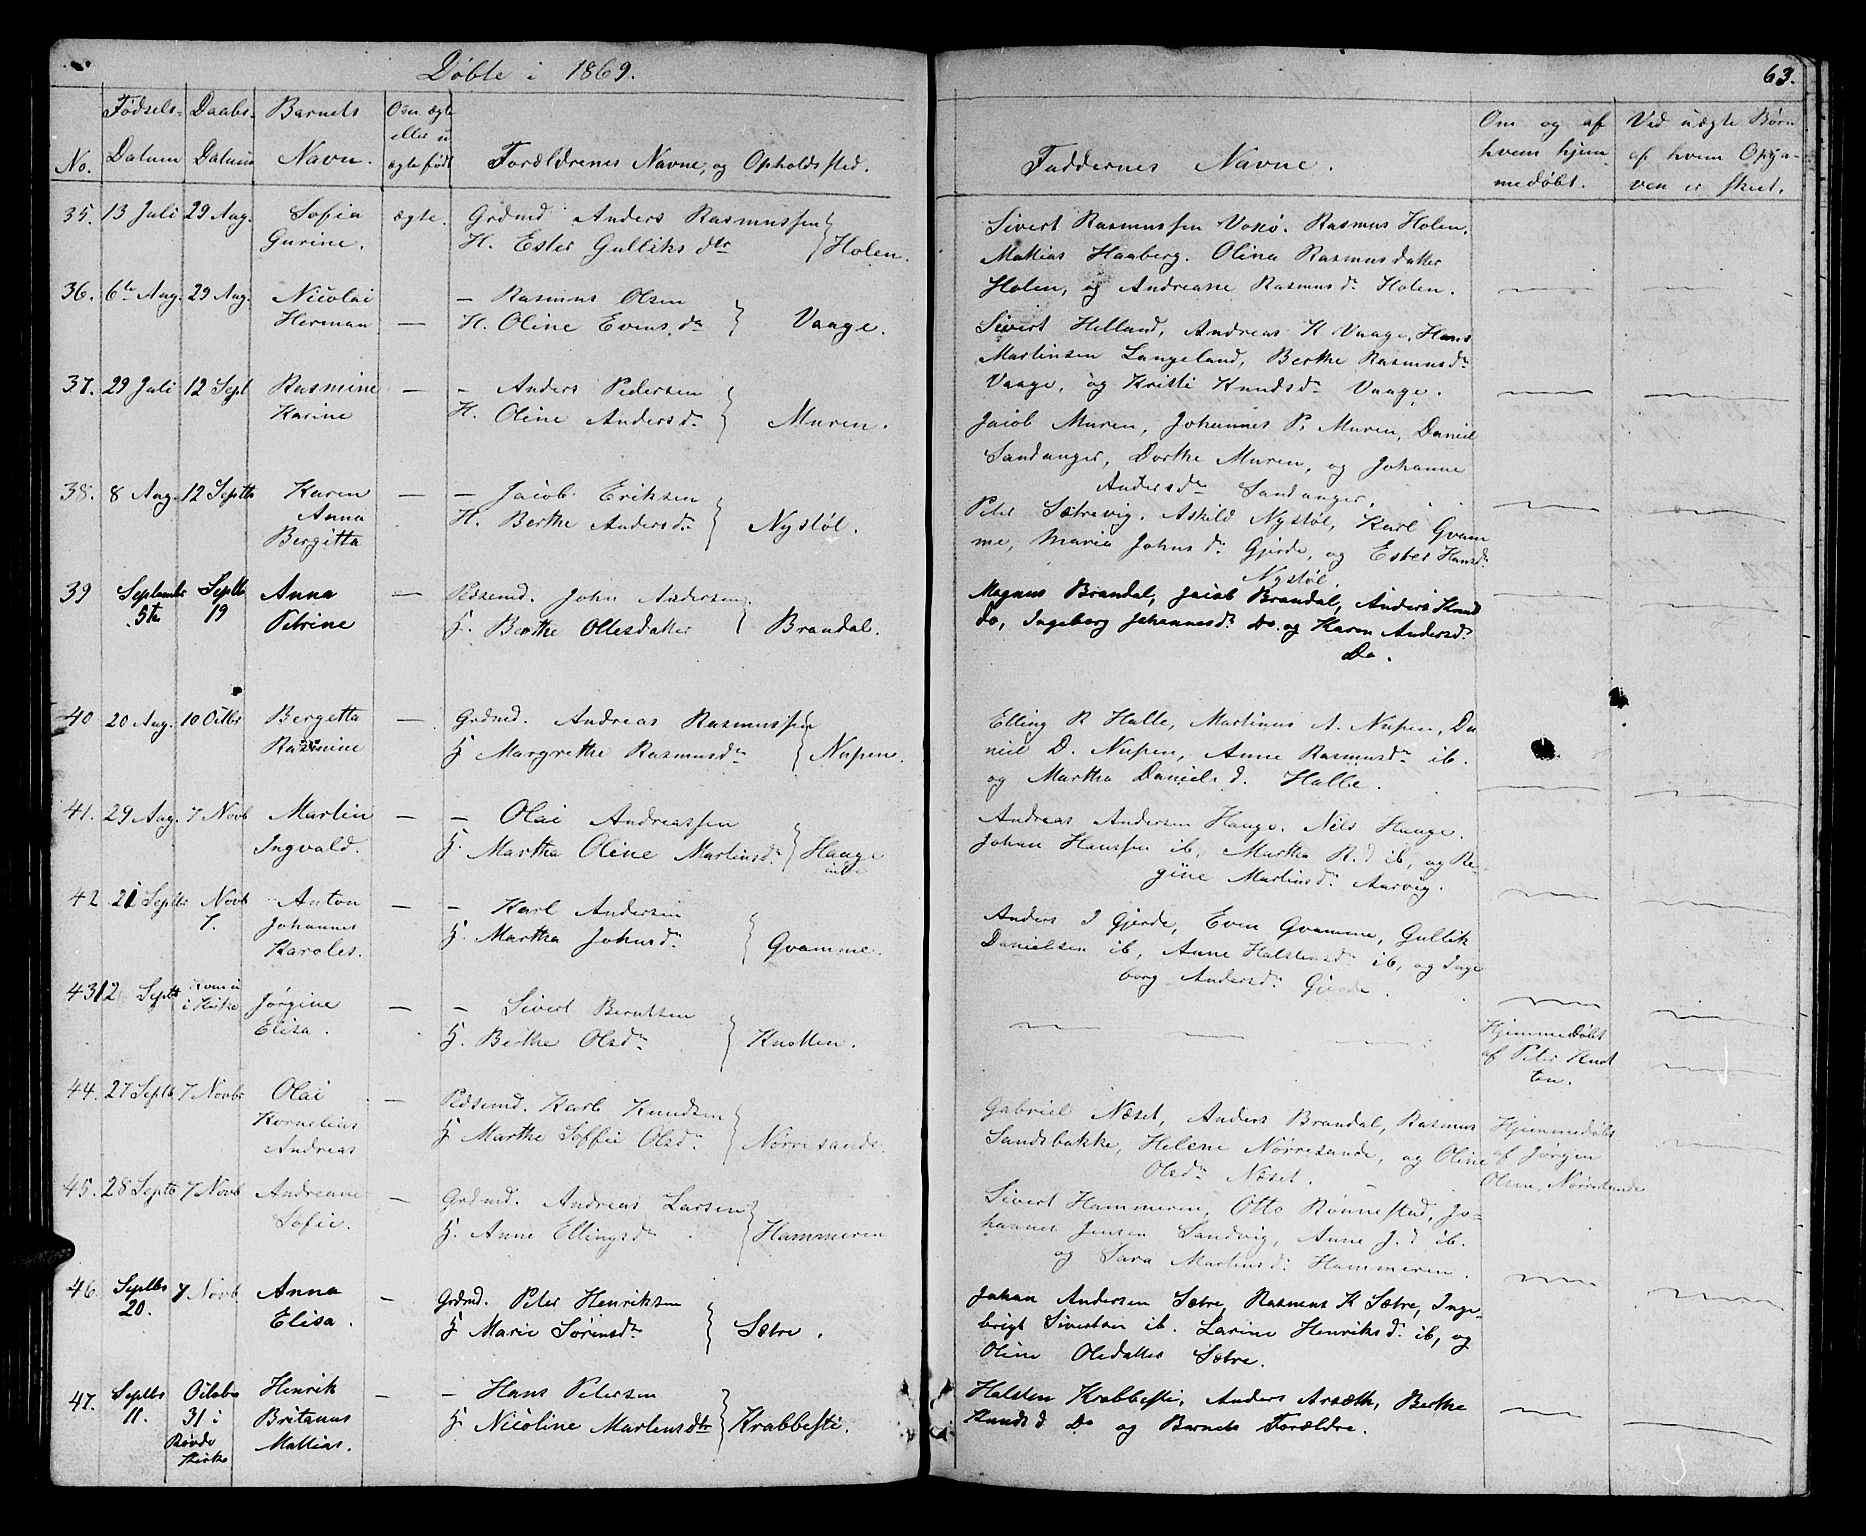 Døbte i 1869.
63.
No.
Fødsels-
Datum
Daabs-
Datum
Barnets
Navn.
Om ægte
eller u
ægte født
Forældrenes Navne, og Opholdssted.
Faddernes Navne.
Om og af
hvem hjem-
medøbt.
Ved uægte Børn
af hvem Opga-
ven er skeet.
35. 13 Juli 29 Aug. Sofia ægte. Grdmd Anders Rasmussen
Gurine. H. Ester Gulliks dtr Holen.
Sivert Rasmussen Voksø. Rasmus Holen.
Mathias Haaberg. Olina Rasmusdatter
Holen, og Andreane Rasmusd. Holen.
36. 6te Aug. 29 Aug. Nicolai — Rasmus Olsen
Herman — H. Oline Evens. da Vaage.
Sivert Helland, Andreas K Vaage, Hans
Martinsen Langeland, Berthe Rasmusdr
Vaage, og Kristi Knudsdr Vaage.
37. 29 Juli 12 Sept Rasmine — — Anders Pedersen
Karine H. Oline Andersdr Muren.
Jacob Muren, Johannes P. Muren, Daniel
Sandanger, Dorthe Muren, og Johanne
Andersdr Sandanger.
38. 8 Aug. 12 Septbr Karen — — Jacob Eriksen
Anna H. Berthe Andersdr Nystøl.
Bergitta
Peter Sætrevig, Askild Nystøl, Karl Gvam
me, Maria Johnsdr Gjerde, og Ester Hansdr
Nystøl.
39 September Septbr Anna — Pladsemd. John Andersen
5te 19 Petrine H. Berthe Ollesdatter Brandal.
Magnus Brandal, Jacob Brandal, Anders Knud
do, Ingeborg Johannesdr Do. og Karen Andersdr
Do.
40 20 Aug. 10 Octbr Bergetta — Grdmd. Andreas Rasmussen
Rasmine H Margrethe Rasmusdr Nupen.
Elling R Halle, Martinus A. Nupen, Da
niel D. Nupen, Anne Rasmusdr ib.
og Martha Daniels d. Halle.
41. 29 Aug. 7 Novb Martin — — Olai Andreassen
Ingvald. H. Martha Oline Martinsdr Hauge
Andreas Andersen Hauge. Nils Hauge.
Johan Hanssen ib, Martha R. d ib, og Re-
gine Martinsdr Aarvig.
42 21 Septbr Novb Anton — — Karl Andersen
7. Johannes H. Martha Johnsdr Gvamme.
Karoles.
Anders J Gjerde, Even Gvamme, Gullik
Danielsen ib, Anne Halstensdr ib, og Inge
borg Andersdr Gjerde.
43 12 Septbr i Kirke Jørgine — — Sivert Berntsen
Elisa. H. Berthe Olsdr Knotten.
Hjemmedøbt
af Peter Knot
ten.
44. 27 Septb 7 Novbr Olai — Pladsemd. Karl Knudsen
Kornelius H Marthe Soffie Olsdr Nørresande.
Andreas
Gabriel Næset, Anders Brandal, Rasmus
Sandsbakke, Helene Nørresande, og Oline
Olsdr Næset.
Hjemmedøbt
af Jørgen
Olsen, Nørresande
45. 28 Septb 7 Novb Andreane — Grdmd. Andreas Larsen
Sofie. H. Anne Ellingsdr Hammeren
Sivert Hammeren, Otto Rønnestad, Jo-
hannes Jensen Sandvig, Anne J. d ib.
og Sara Martinsd. Hammeren.
46. Septbr 7 Novb Anna — Grdmd. Peter Henriksen
20. Elisa. H Marie Sørensdr Sætre.
Johan Andersen Sætre, Rasmus K Sætre, Inge-
brigt Sivertsen ib. Larine Henriksd. ib, og
Oline Olsdatter Sætre.
47. Septbr Octobr Henrik — — Hans Petersen
11. 31 i Britanus H. Nicoline Martensdtr Krabbesti.
Rovde Mathias.
Kirke
Halsten Krabbesti, Anders Arsæth, Berthe
Knuds d Do og Barnets Forældre.